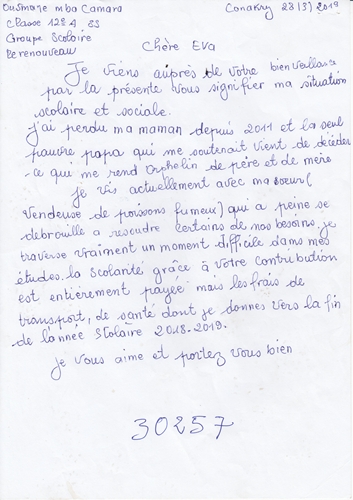 Ousmane mba Camara
Conakry 28/3/2019
Classe 12è A SS
Groupe Scolaire
Le renouveau
Chère Eva
Je viens auprès de votre bienveillance
par la présente vous signifier ma situation
scolaire et sociale.
j'ai perdu ma maman depuis 2011 et la seul
pauvre papa qui me soutenait vient de décéder
ce qui me rend orphelin de père et de mère
Je vis actuellement avec ma soeur (
vendeuse de poissons fumeux) qui a peine se
debrouille a resoudre certains de nos besoins. je
traverse vraiment un moment difficile dans mes
études. la scolarité grâce à votre contribution
est entièrement payée mais les frais de
transport, de santé dont je donnes vers la fin
de l'année Scolaire 2018-2019.
je vous aime et portez vous bien
30257